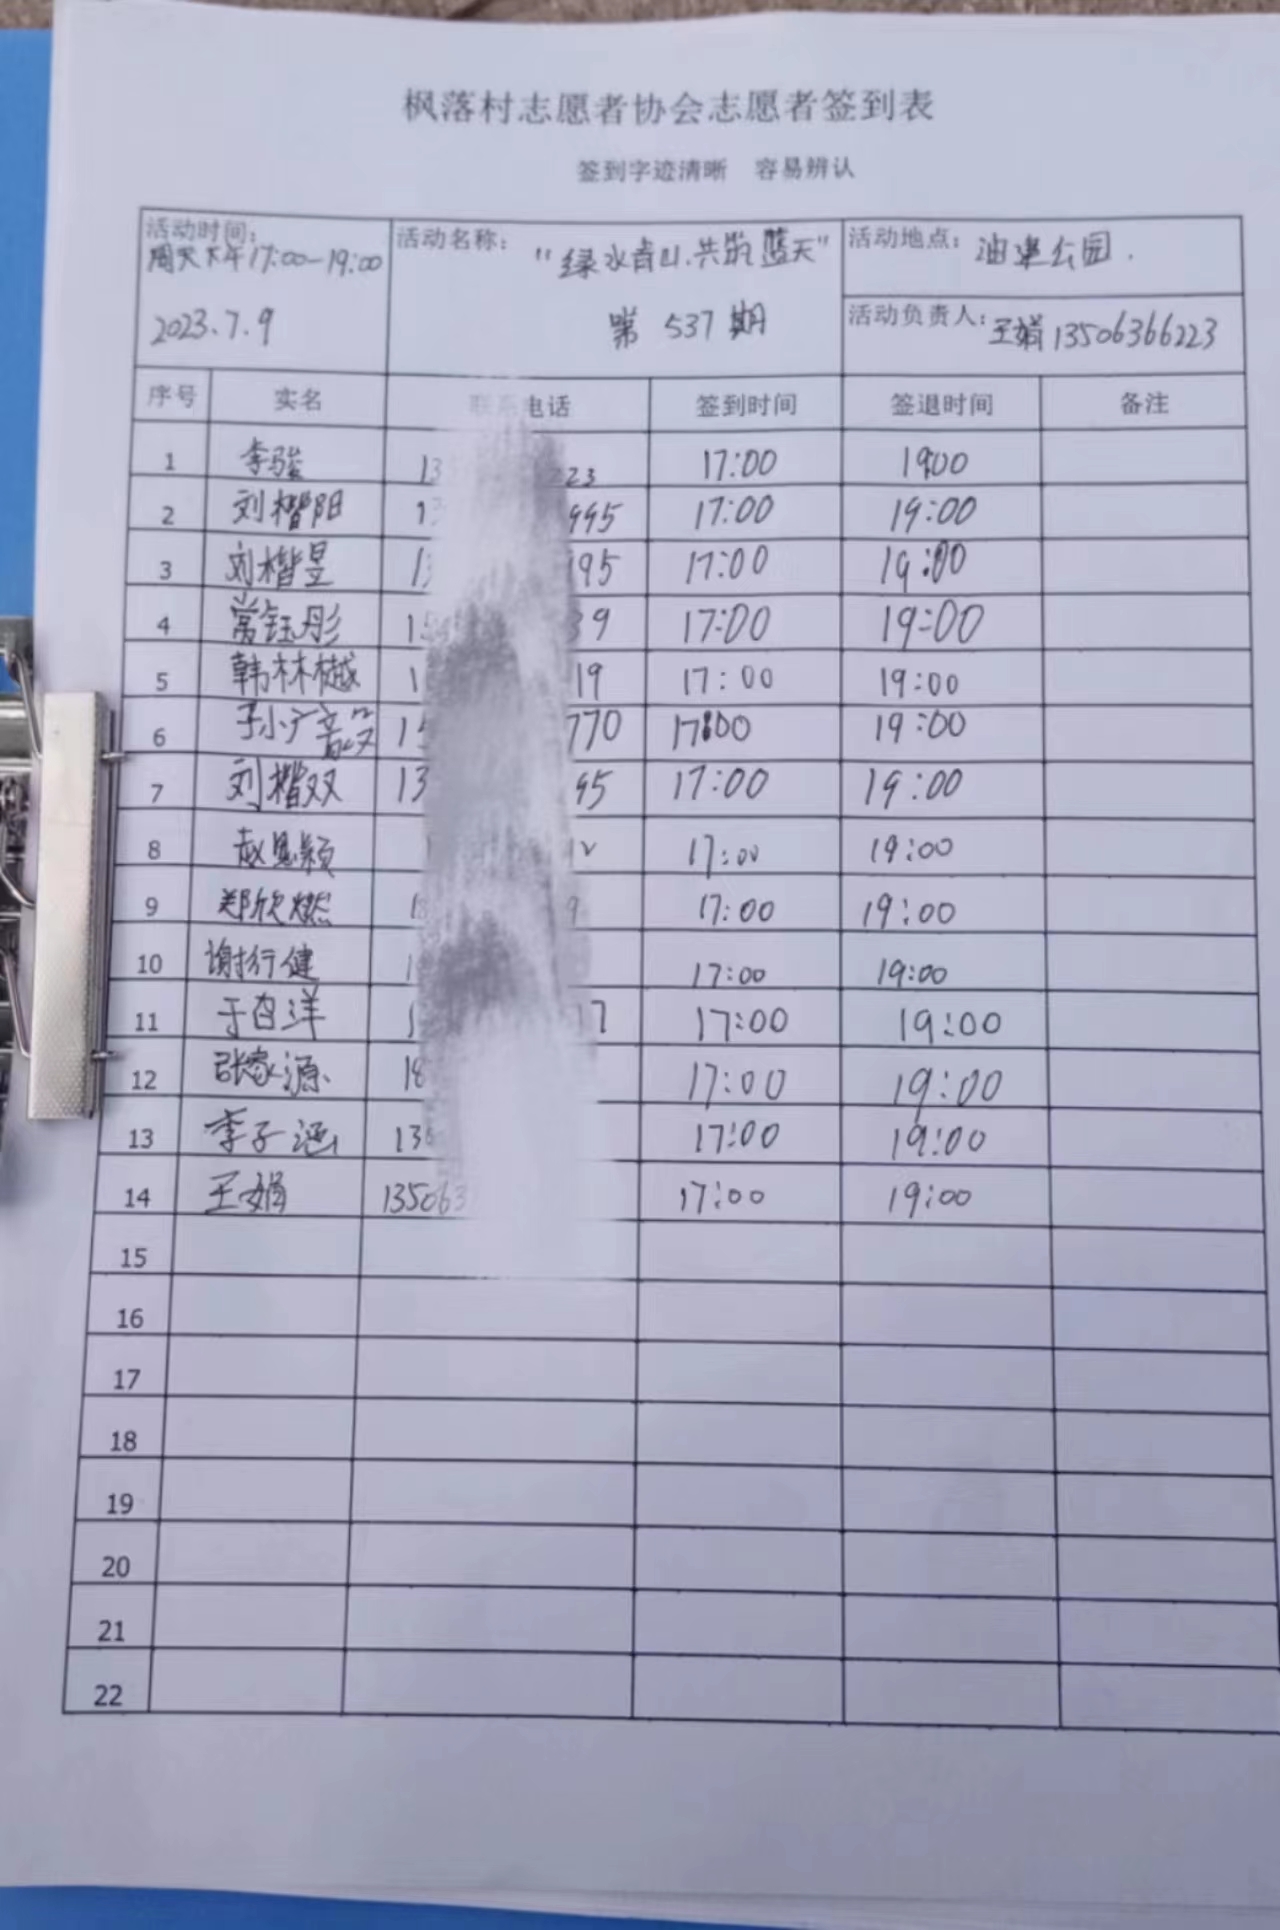 枫落村志愿者协会志愿者签到表
签到字迹清晰 容易辨认
活动时间: 周天下午17:00-19:00
2023.7.9
活动名称: "绿水青山.共筑蓝天"
第 537 期
活动地点: 油建公园.
活动负责人: 王娟 13506366223
序号 实名 联系电话 签到时间 签退时间 备注
1 李骏 13 23 17:00 19:00
2 刘楷阳 13 995 17:00 19:00
3 刘楷昱 13 995 17:00 19:00
4 常钰彤 15 39 17:00 19:00
5 韩林樾 1 19 17:00 19:00
6 15 770 17:00 19:00
7 刘楷双 13 95 17:00 19:00
8 赵思颖 12 17:00 19:00
9 郑欣燃 18 9 17:00 19:00
10 谢行健 1 17:00 19:00
11 于百洋 1 17 17:00 19:00
12 张家源 18 17:00 19:00
13 李子涵 13 17:00 19:00
14 王娟 135063 17:00 19:00
15
16
17
18
19
20
21
22